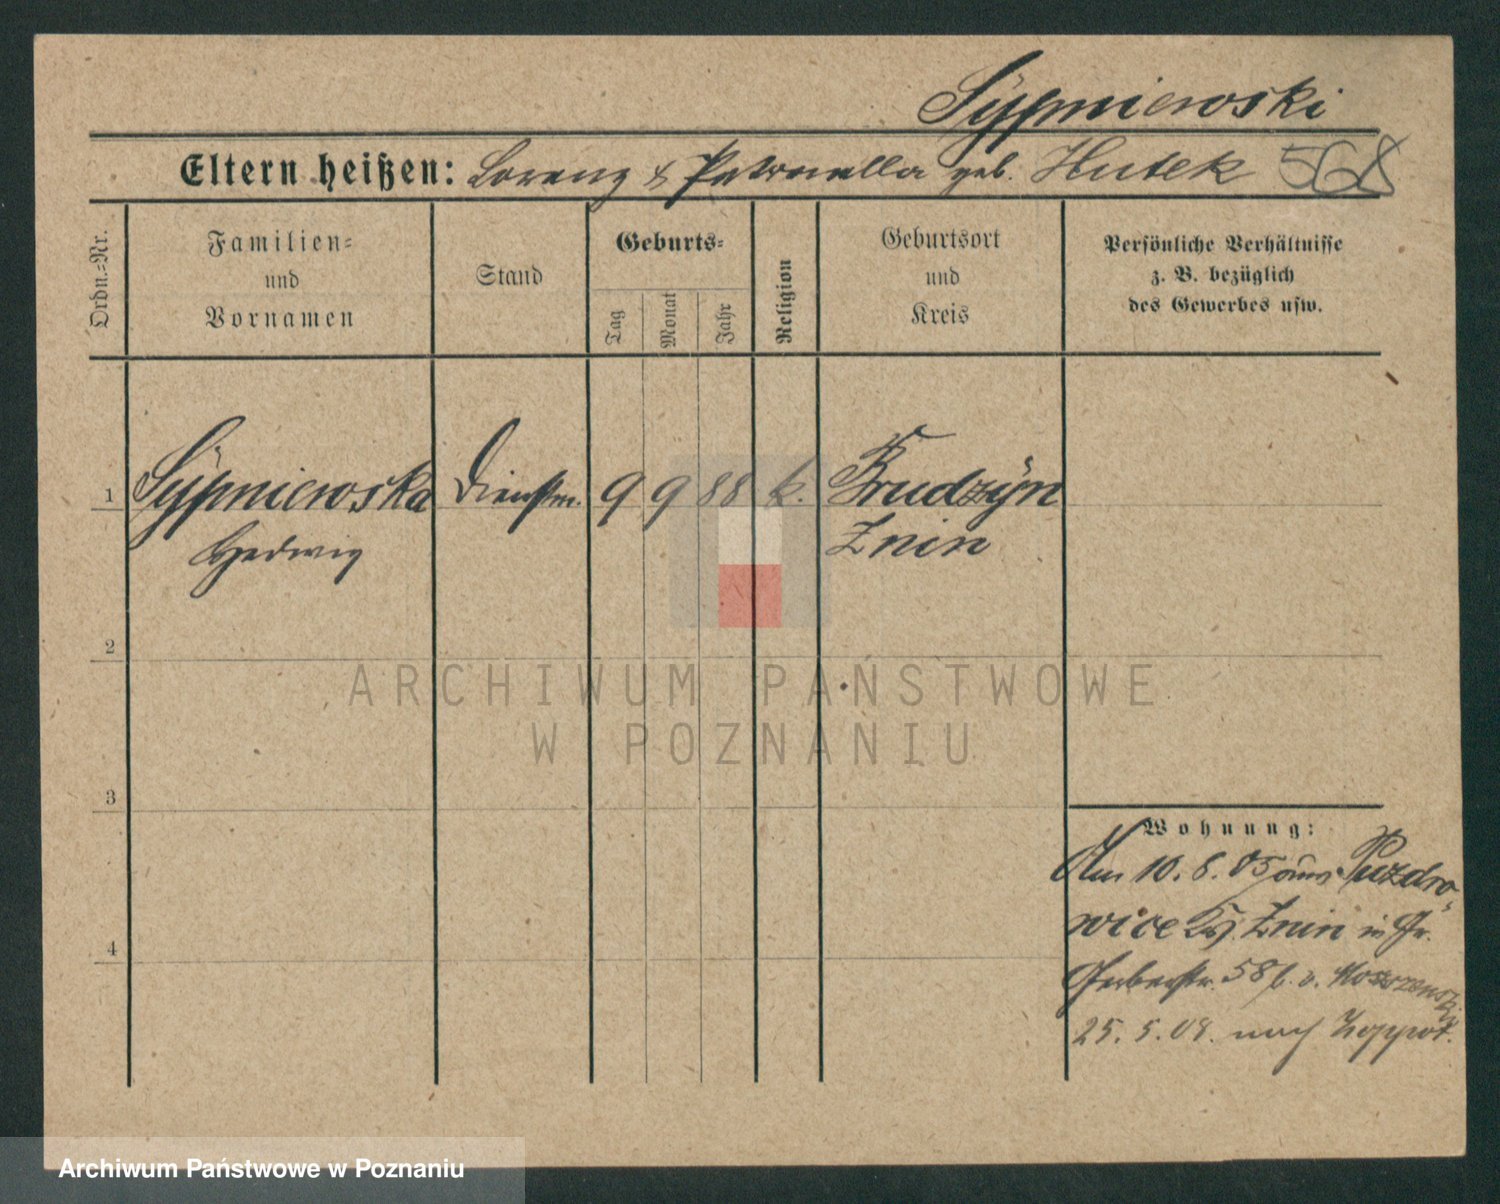 Sypniewski
Eltern heißen: Lorenz & Petronella geb. Hutek 568
Ordn.=Nr.
Familien=
und
Vornamen
Stand
Geburts=
Tag
Monat
Jahr
Religion
Geburtsort
und
Kreis
Persönliche Verhältnisse
z. B. bezüglich
des Gewerbes usw.
1 Sypniewska Dienstm. 9 9 88 k. Brudzyn
Hedwig Znin
2
3
4
Wohnung:
Am 10. 8. 05 aus Puzdro-
wice Kr. Znin in Gr.
Gerberstr. 58 b. v.
25. 5. 08. nach Zoppot.
ARCHIWUM PAŃSTWOWE
W POZNANIU
Archiwum Państwowe w Poznaniu